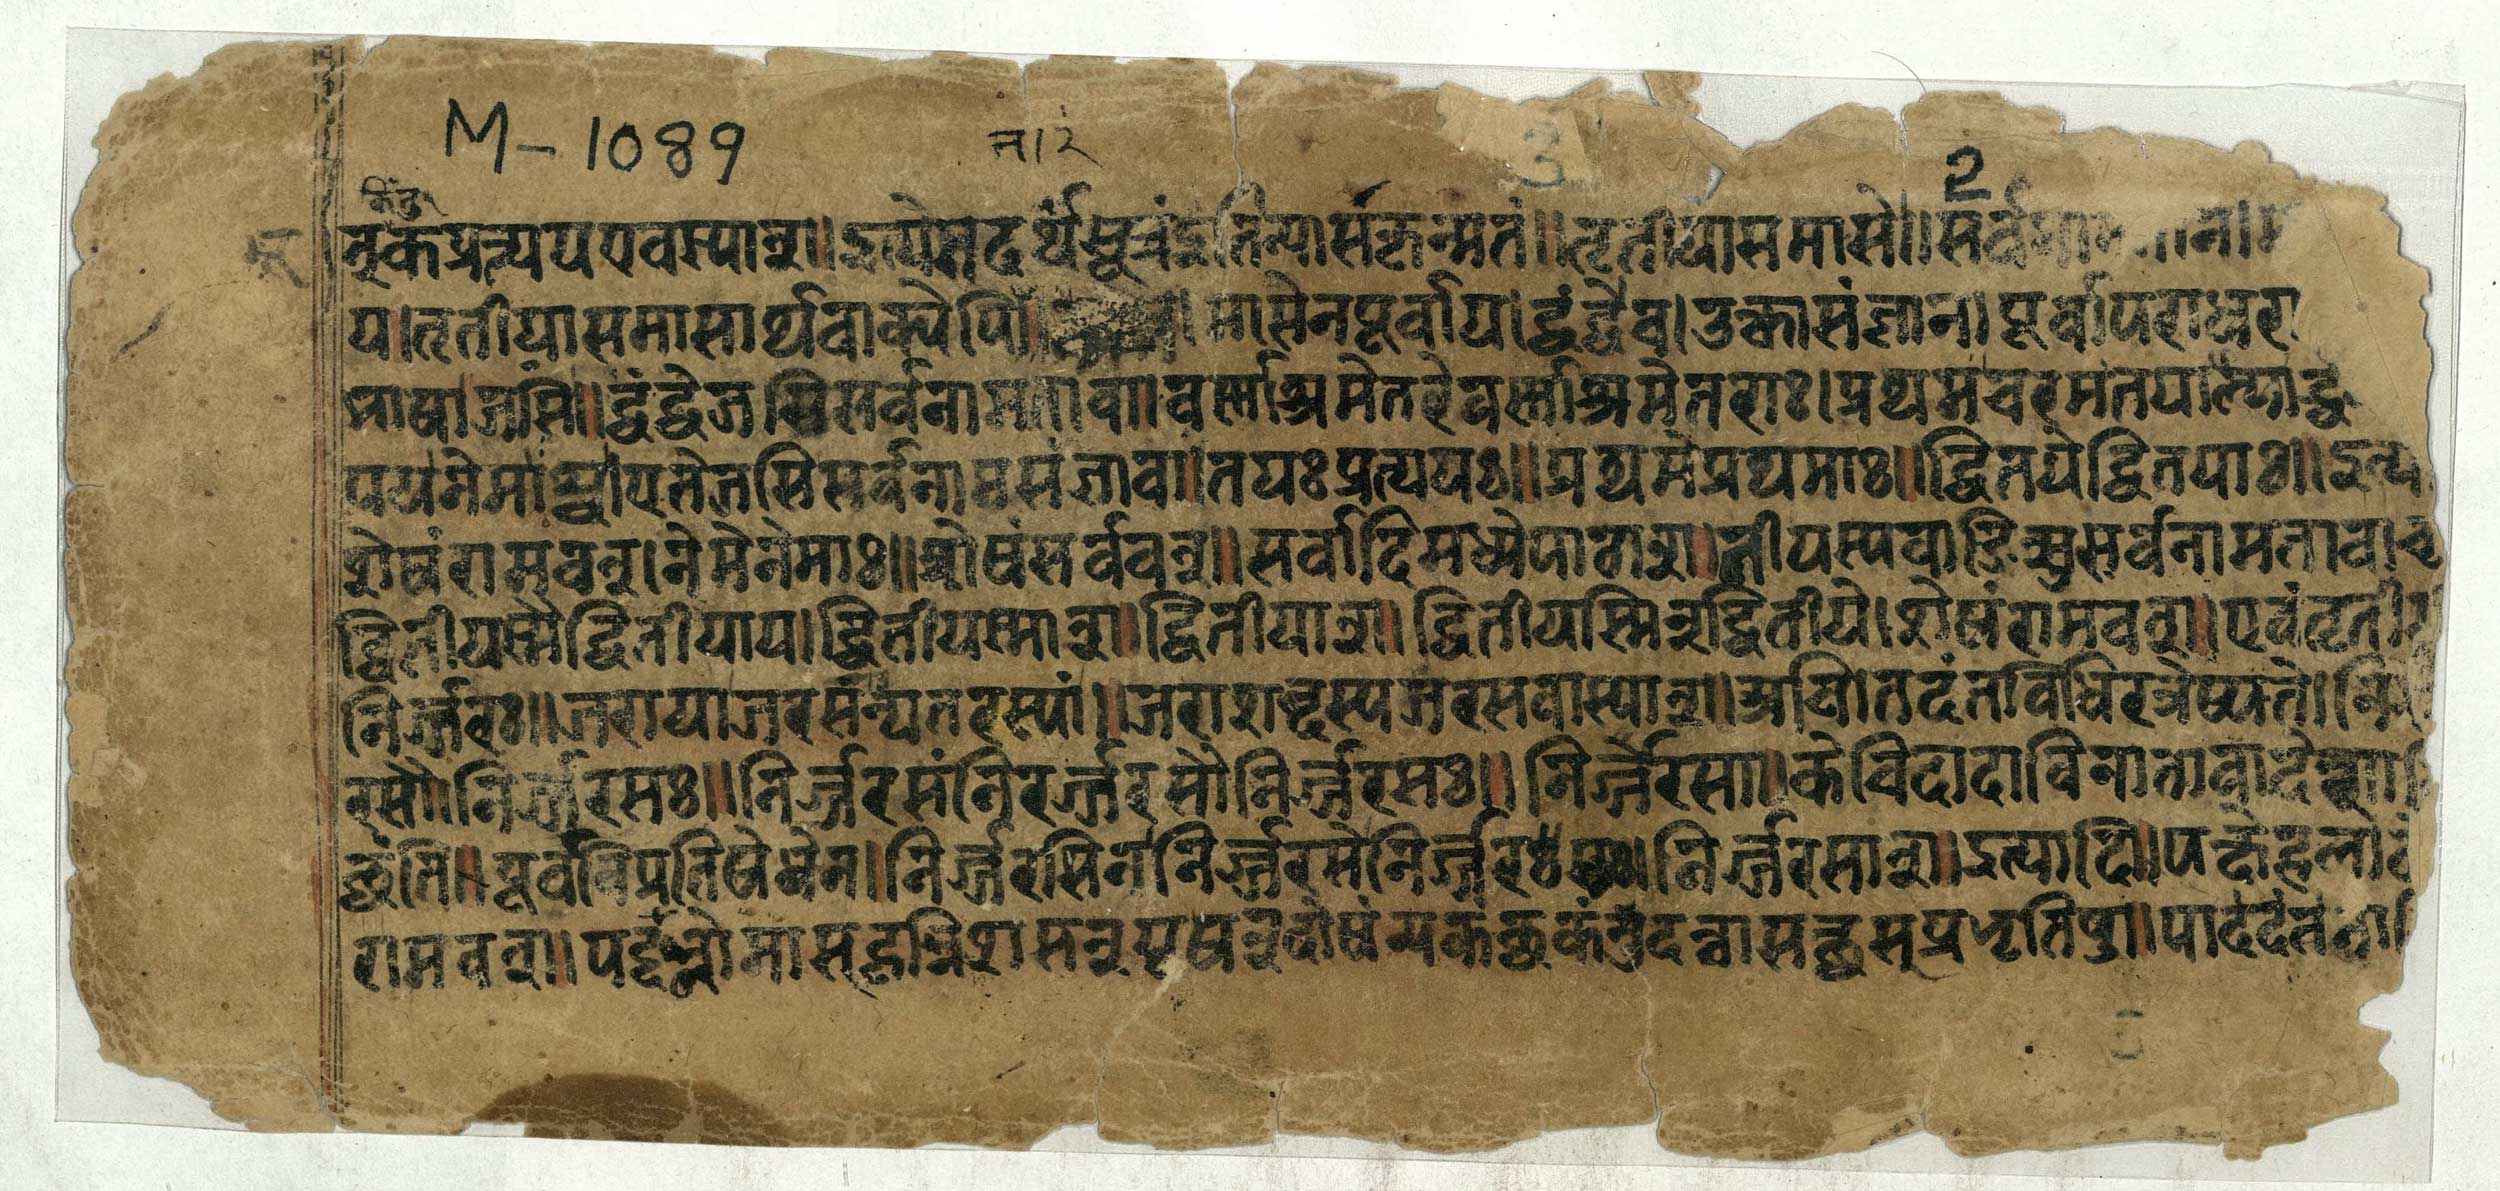 M-1089
ना२
3
2
किंतु
त्कप्रत्यय एवस्यात्॥ इत्येतदर्थंसूत्रंइतिन्यासकृन्मतं॥ तृतीयासमासे॥ सर्वनाम
य।तृतीयासमासार्थवाक्येपि॥ मासेनपूर्वाय।द्वंद्वेच।उक्तासंज्ञान।पूर्वापराधरा
भाषाजसि॥द्वंद्वेजसिसर्वनामतावा॥वर्णाश्रमेतरेवर्णाश्रमेतराः।प्रथमचरमतयाल्पार्द्ध
पयनेमाश्चएतेजसिसर्वनामसंज्ञावा॥तयःप्रत्ययः॥प्रथमेप्रथमाः॥द्वितयेद्वितयाः॥इत्य
शेषंरामवत्।नेमेनेमाः॥शेषंसर्ववत्॥सर्वादिमध्येपाठात्॥तीयस्यवाङित्सुसर्वनामतावाच
द्वितीयस्मैद्वितीयाय।द्वितीयस्मात्॥द्वितीयात्॥द्वितीयस्मिन्द्वितीये।शेषंरामवत्॥एवंतृतीय
निर्ज्जरः॥जरायाजरसन्यतरस्यां॥जराशब्दस्यजरसवास्यात्॥अचि।तदंतविधिरत्रेष्यते।नि
रसौ॥निर्ज्जरसः॥निर्ज्जरसंनिरर्ज्जरसौनिर्ज्जरसः॥निर्ज्जरसा॥केचिदादाविनातावादेच्चा
छंति॥पूर्वविप्रतिषेधेन॥निर्ज्जरसिननिर्ज्जरसेनिर्ज्जरसः।निर्ज्जरसात्॥इत्यादि॥पक्षेहला
रामवत्॥पद्दन्नोमास्हृन्निशसन्यूषन्दोषंयकछकंनुदन्नासञ्छस्प्रभृतिषु॥पाददंतना